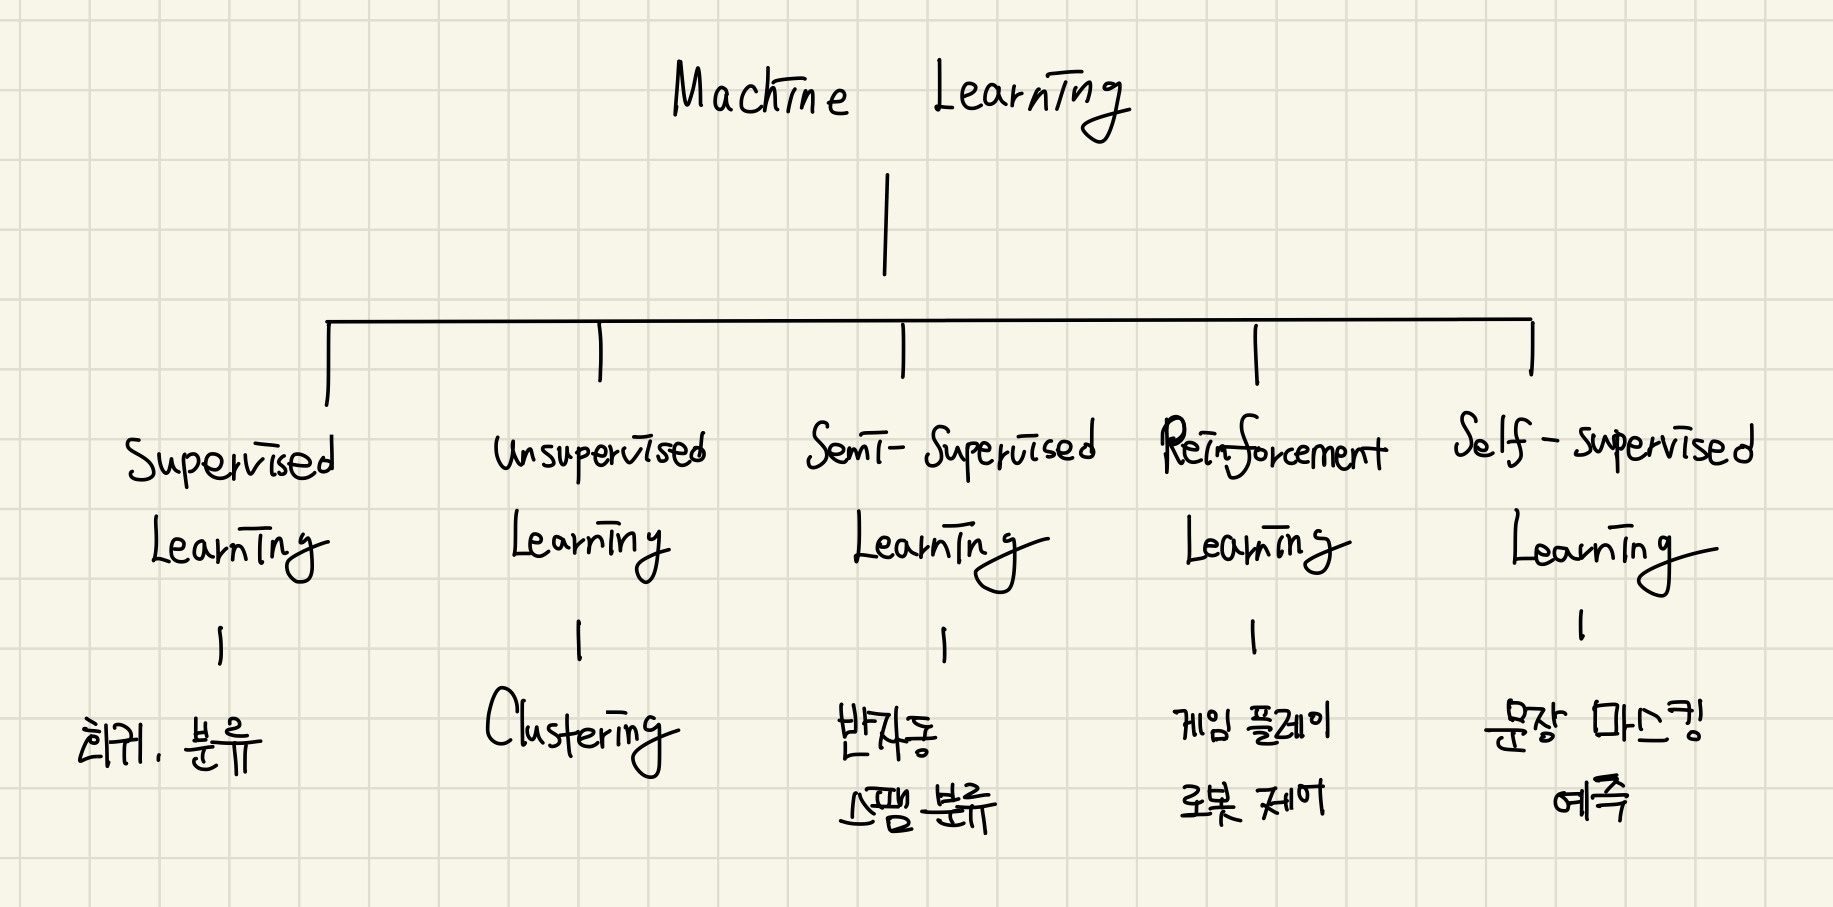 Machine Learning
Supervised
Learning
회귀, 분류
Unsupervised
Learning
Clustering
Semi-Supervised
Learning
반자동
스팸 분류
Reinforcement
Learning
게임 플레이
로봇 제어
Self-supervised
Learning
문장 마스킹
예측